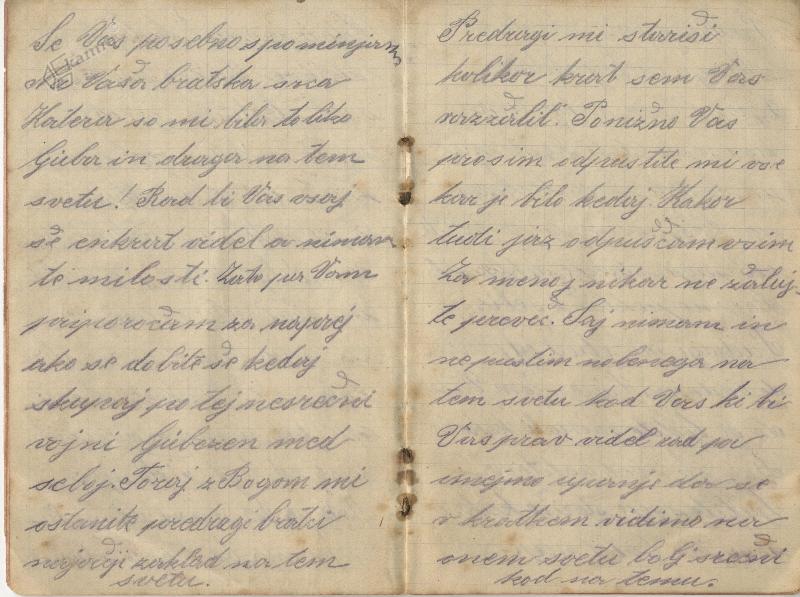 Še Vas posebno spominjam
na Vaša bratska srca
Katera so mi bila toliko
ljuba in draga na tem
svetu! Rad bi Vas vsaj
še enkrat videl a nimam
te milosti. Zato pa Vam
priporočam za naprej
ako se dobite še kedaj
skupaj po tej nesrečni
vojni ljubezen med
seboj. Toraj z Bogom mi
ostanite predragi bratki
najdražji zaklad na tem
svetu.
Predragi mi stariši
kolikor krat sem Vas
razžalil. Ponižno Vas
prosim odpustite mi vse
kar je bilo kedaj. Kakor
tudi jaz odpuščam vsim
Za menoj nikar ne žaluj-
te preveč. Saj nimam in
ne pustim nobenega na
tem svetu kod Vas ki bi
Vas prav videl rad pa
imejmo upanje da se
v kratkem vidimo na
onem svetu bolj srečni
kod na temu.